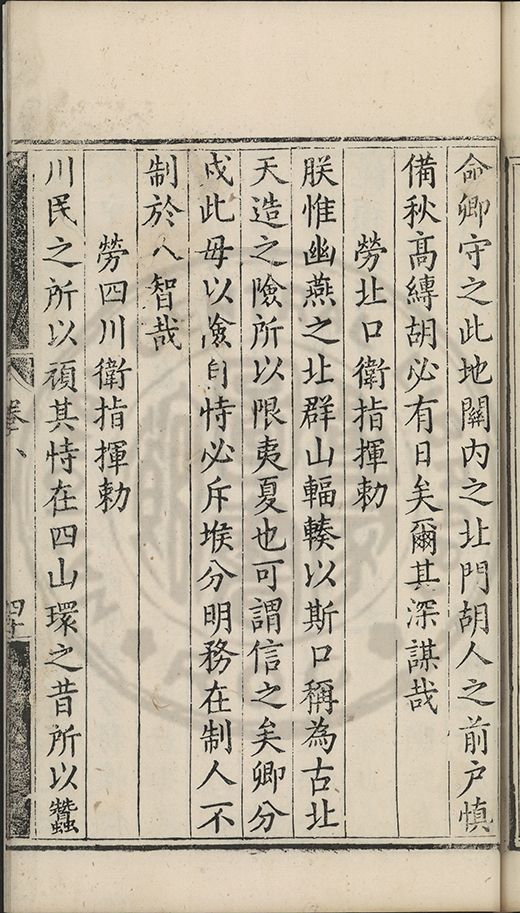 命卿守之此地關內之北門胡人之前户慎
備秋髙縳胡必有日矣爾其深謀哉
勞北口衛指揮勅
朕惟幽燕之北群山輻輳以斯口稱為古北
天造之險所以限夷夏也可謂信之矣卿分
戍此毋以險自恃必斥堠分明務在制人不
制於人智哉
勞四川衛指揮勅
川民之所以頑其恃在四山環之昔所以蠶
卷八
四十